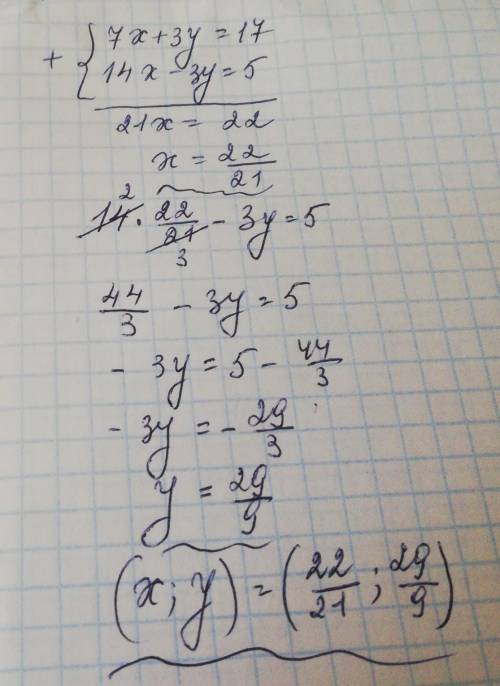 + { 7x + 3y = 17
14x - 3y = 5
21x = 22
x = 22/21
14 2 · 22/21 3 - 3y = 5
44/3 - 3y = 5
- 3y = 5 - 44/3
- 3y = - 29/3
y = 29/9
(x; y) = (22/21; 29/9)